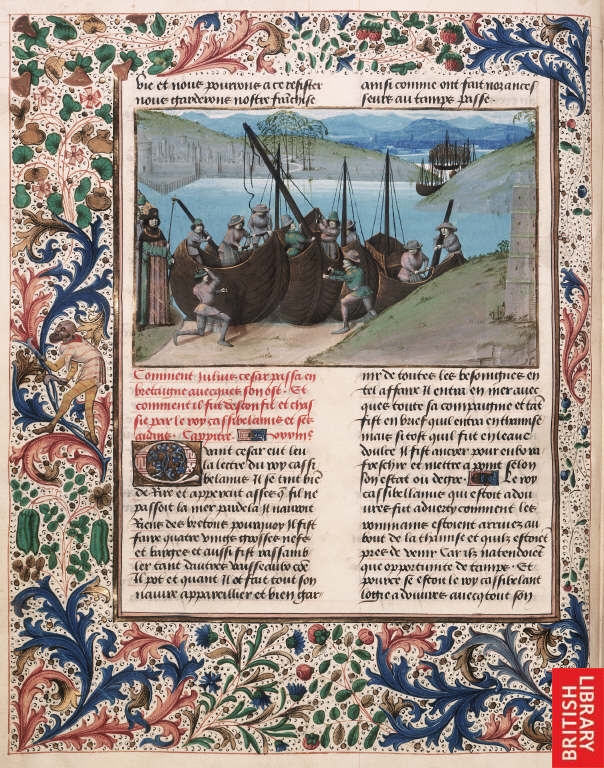 vie et nous pourrons a ce resister
nous garderons nostre franchise
ainsi comme ont fait noz ances
seurs au temps passe.
Comment Julius cesar passa en
bretaigne auecques son ost. Et
comment il fut desconfit et chas
sie par le roy cassibelanus et ses
aidans. Cappitre
Quant cesar eut leu
la lettre du roy cassi
belanus il se tint bien
de Rire et apperceut asses que sil ne
passoit la mer par dela il nauroit
Riens des bretons pourquoy il fist
faire quatre vings grosses nefz
et barges et aussi fist rassamb
ler tant dautres vaisseaulx que
il pot et quant il ot fait tout son
nauire appareillier et bien gar
nir de toutes les besoingnes en
tel affaire il entra en mer auec
ques toute sa compaignie et tant
fist en brief quil entra en thamise
mais si tost quil fut en leaue
dulce il fist ancrer pour eulx ra
freschir et mettre a point selon
son estat ou degre. Le roy
cassibelanus qui estoit a dou
ures fut aduerty comment les
rommains estoient arriuez au
bout de la thamise et quilz estoient
pres de venir car ilz natendoient
que opportunite de temps. Et
pource se estoit le roy cassibelanus
logie a douures auecq tout son
BRITISH
LIBRARY